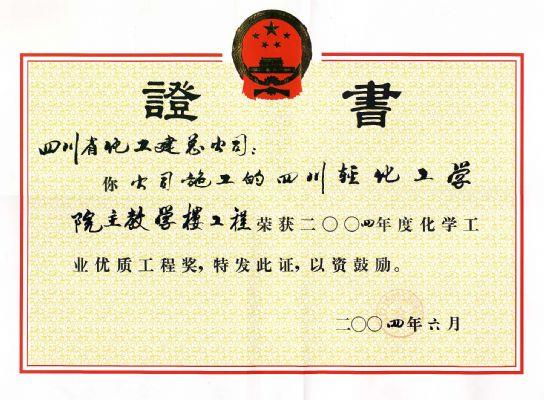 證書
四川省化工建总公司:
你公司施工的四川轻化工学
院主教学楼工程荣获二〇〇四年度化学工
业优质工程奖，特发此证，以资鼓励。
二〇〇四年六月